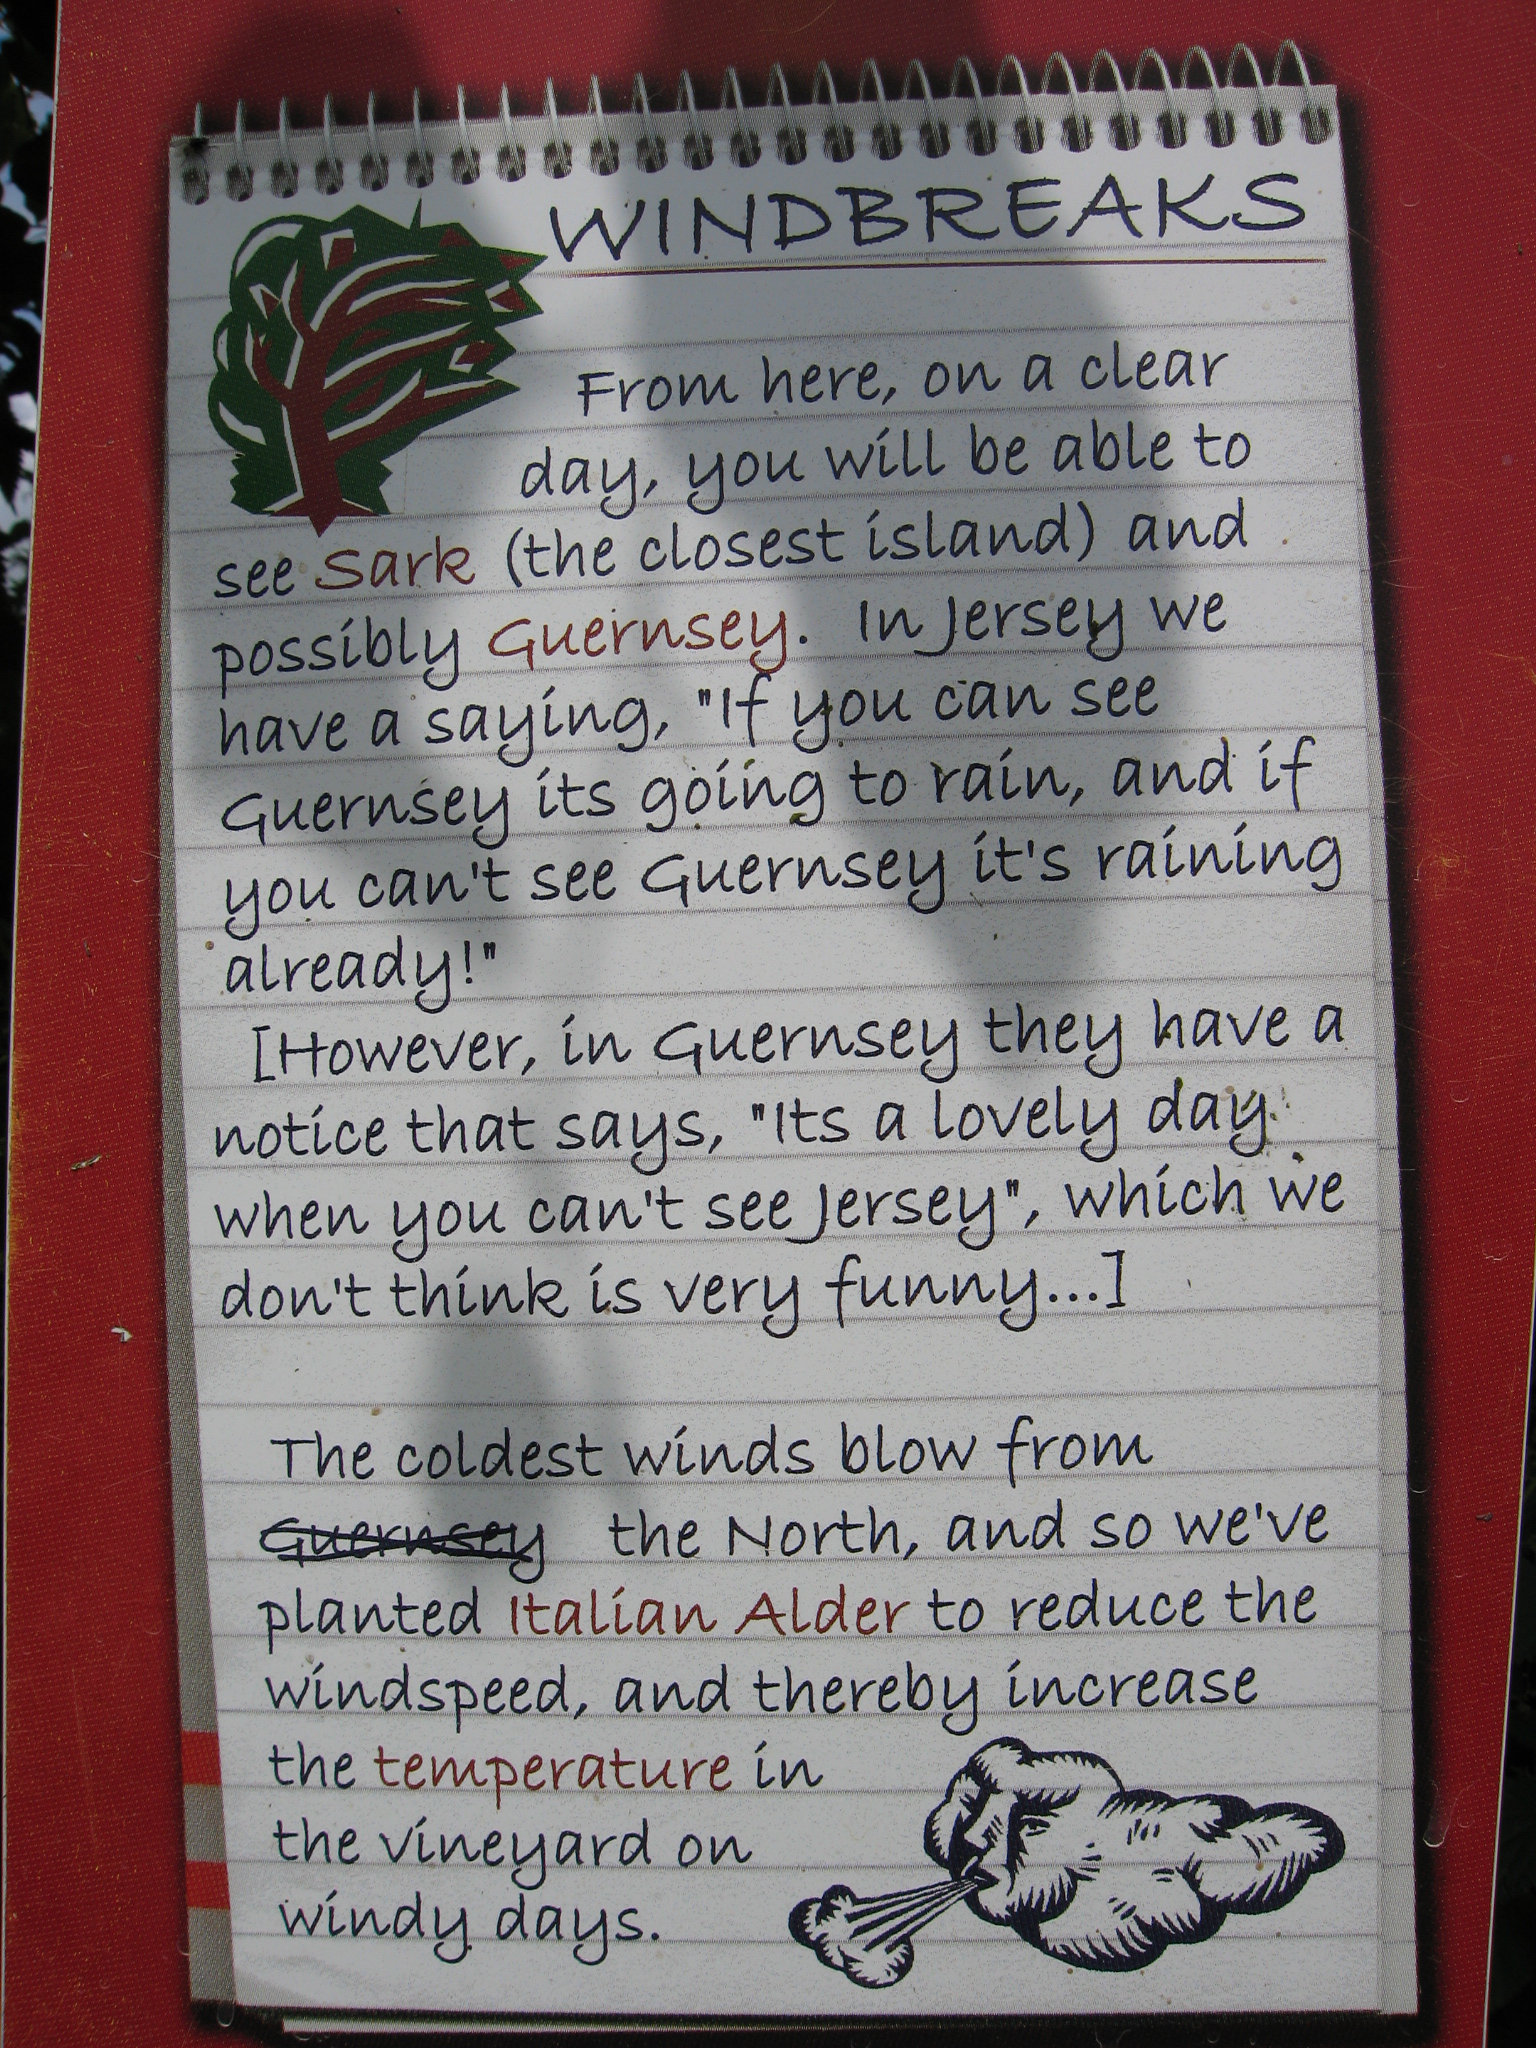 WINDBREAKS
From here, on a clear
day, you will be able to
see Sark (the closest island) and
possibly Guernsey. In Jersey we
have a saying, "If you can see
Guernsey its going to rain, and if
you can't see Guernsey it's raining
already!"
[However, in Guernsey they have a
notice that says, "Its a lovely day
when you can't see Jersey", which we
don't think is very funny...]
The coldest winds blow from
Guernsey the North, and so we've
planted Italian Alder to reduce the
windspeed, and thereby increase
the temperature in
the vineyard on
windy days.